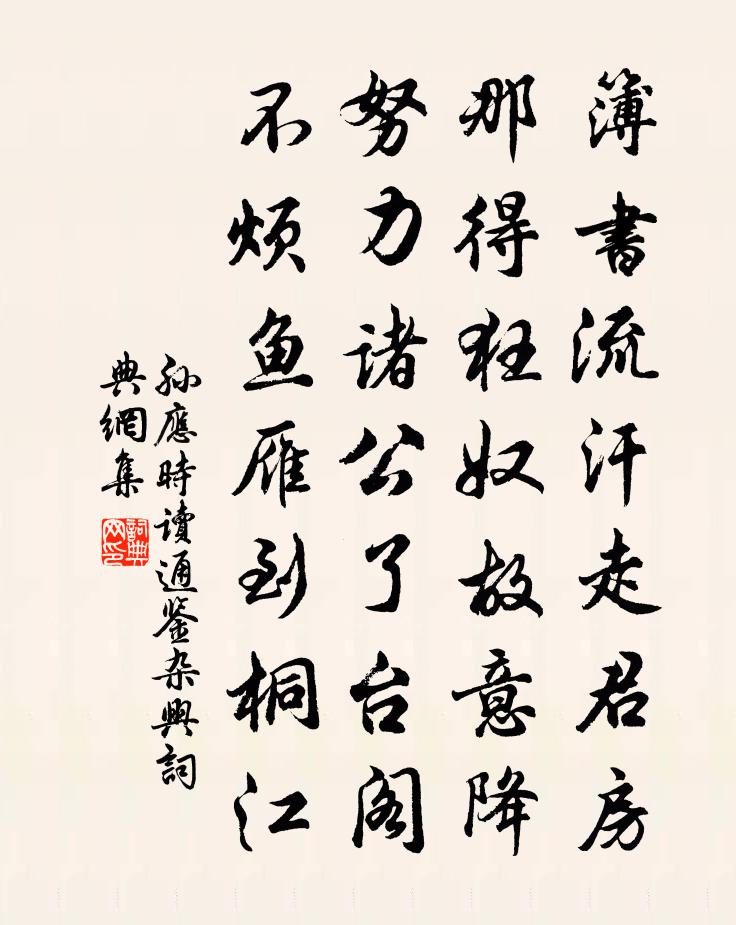 簿書流汗走君房
那得狂奴故意降
努力诸公了台阁
不烦鱼雁到桐江
孙應時读通鉴杂興詞
典網集
詞典网印